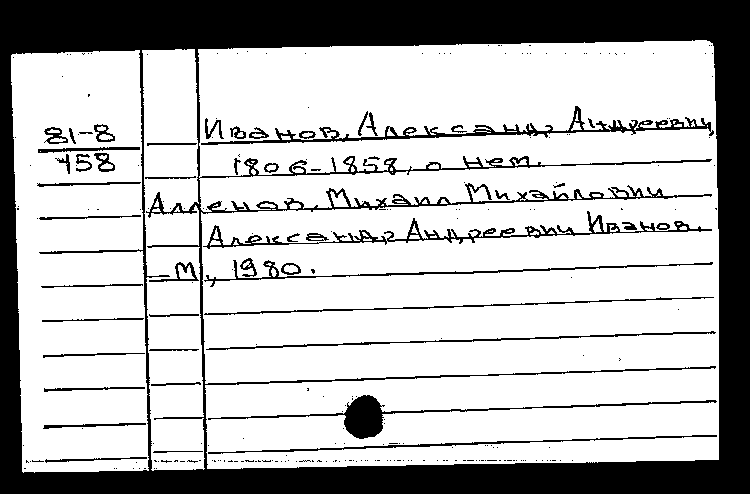 81-8
458
Иванов, Александр Андреевич,
1806-1858, о нем.
Алленов, Михаил Михайлович
Александр Андреевич Иванов.
-М., 1980.